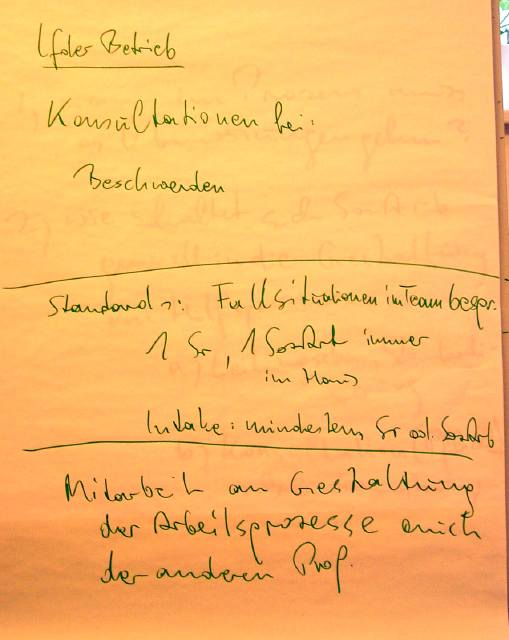 lfder Betrieb
Konsultationen bei:
Beschwerden
Standards: Fallsituationen im Team bespr.
1 Sr, 1 SozArb immer
im Haus
Intake: mindestens Sr od. SozArb
Mitarbeit an Gestaltung
der Arbeitsprozesse auch
der anderen Prof.